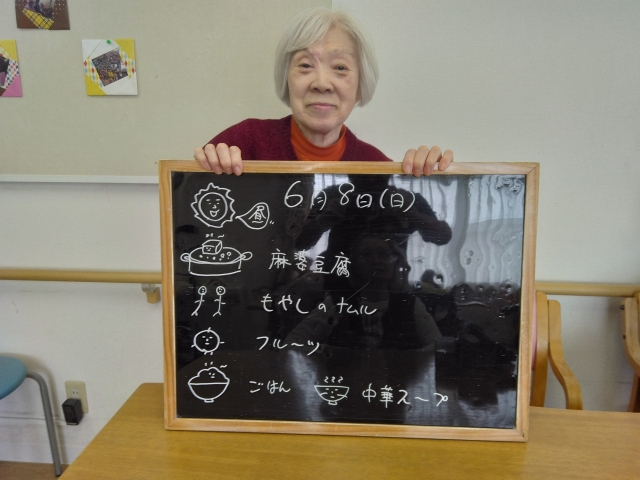 昼 6月8日(日)
麻婆豆腐
もやしのナムル
フルーツ
ごはん 中華スープ